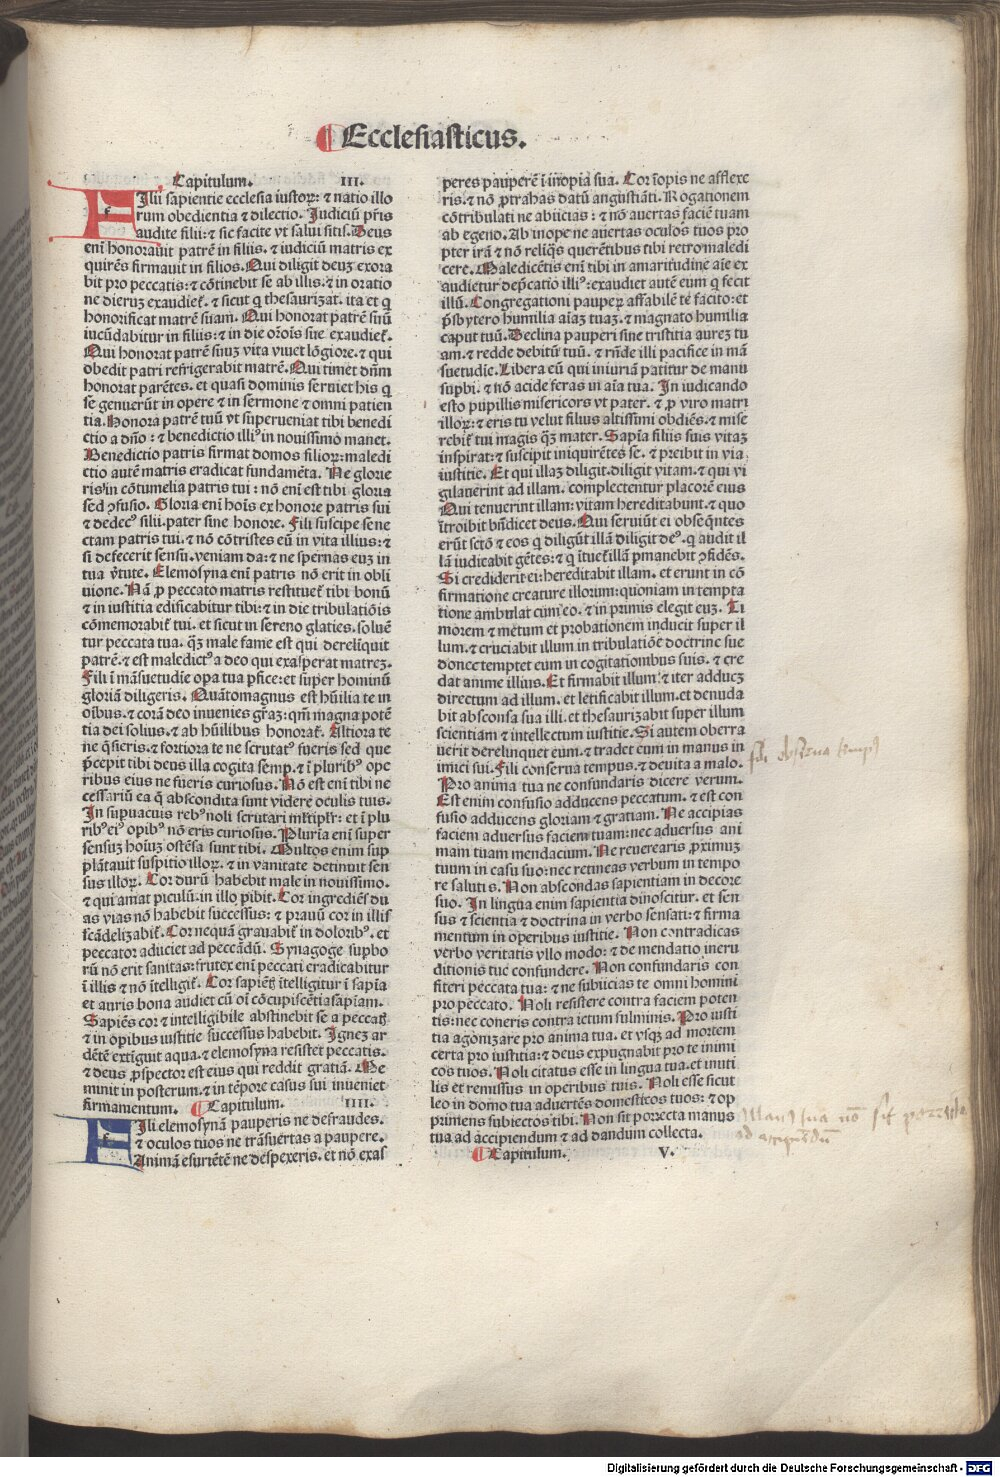 Ecclesiasticus.
Capitulum. III.
FIlii sapientie ecclesia iustoꝝ: ⁊ natio illo
rum obedientia ⁊ dilectio. Judiciū pr̄is
audite filii: ⁊ sic facite vt salui sitis. Deus
eni honorauit patrē in filiis. ⁊ iudiciū matris ex
quirēs firmauit in filios. Qui diligit deuꝫ exora
bit pro peccatis: ⁊ cōtinebit se ab illis. ⁊ in oratio
ne dieruꝫ exaudiet᷑. ⁊ sicut q̇ thesaurizat. ita et q̇
honorificat matrē suam. Qui honorat patrē suū
iucūdabitur in filiis: ⁊ in die or̄ōis sue exaudiet᷑.
Qui honorat patrē suuꝫ vita viuet lōgiore. ⁊ qui
obedit patri refrigerabit matrē. Qui timet dn̄m
honorat parētes. et quasi dominis seruiet his q̇
se genuerūt in opere ⁊ in sermone ⁊ omni patien
tia. Honora patrē tuū vt superueniat tibi benedi
ctio a dn̄o: ⁊ benedictio illiꝰ in nouissimo manet.
Benedictio patris firmat domos filioꝝ: maledi
ctio autē matris eradicat fundamēta. Ne glorie
ris in cōtumelia patris tui: nō eni est tibi gloria
sed ꝯfusio. Gloria eni hoīs ex honore patris sui
⁊ dedecꝰ filii. pater sine honore. Fili suscipe sene
ctam patris tui. ⁊ nō cōtristes eū in vita illius: ⁊
si defecerit sensu. veniam da: ⁊ ne spernas euꝫ in
tua v̄tute. Elemosyna eni patris nō erit in obli
uione. Nā ꝓ peccato matris restituet᷑ tibi bonū
⁊ in iustitia edificabitur tibi: ⁊ in die tribulatiōis
cōmemorabit᷑ tui. et sicut in sereno glaties. soluē
tur peccata tua. qꝫ male fame est qui derelīquit
patrē. ⁊ est maledictꝰ a deo qui exasperat matreꝫ.
Fili ī māsuetudie opa tua ꝑfice: et super hominū
gloriā diligeris. Quātomagnus es hūilia te in
oībus. ⁊ corā deo inuenies graꝫ: qm̄ magna potē
tia dei solius. ⁊ ab hūilibus honorat᷑. Altiora te
ne q̄sieris. ⁊ fortiora te ne scrutatꝰ fueris sed que
p̄cepit tibi deus illa cogita semp. ⁊ ī pluribꝰ ope
ribus eius ne fueris curiosus. Nō est eni tibi ne
cessariū ea q̄ abscondita sunt videre oculis tuis.
In supuacuis rebꝰ noli scrutari mltiplr̄: et ī plu
ribꝰ eiꝰ opibꝰ nō eris curiosus. Plurīa eni super
sensuꝫ hoiuꝫ ostēsa sunt tibi. Multos enim sup
plātauit suspitio illoꝝ. ⁊ in vanitate detinuit sen
sus illoꝝ. Cor durū habebit male in nouissimo.
⁊ qui amat piculū. in illo pibit. Cor ingrediēs du
as vias nō habebit successus: ⁊ prauū cor in illis
scādelizabit᷑. Cor nequā grauabit᷑ in doloribꝰ. et
peccator adiiciet ad peccādū. Synagoge supbo
rū nō erit sanitas: frutex eni peccati eradicabitur
ī illis ⁊ nō ītelligit᷑. Cor sapiētꝭ ītelligitur ī sapīa
et auris bona audiet cū oī cōcupiscētia sapiam.
Sapiēs cor ⁊ intelligibile abstinebit se a peccatꝭ
⁊ in opibus iustitie successus habebit. Igneꝫ ar
dētē extīguit aqua. ⁊ elemosyna resistet peccatis.
⁊ deus ꝓspector est eius qui reddit gratiā. Me
minit in posterum. ⁊ in tēpore casus sui inueniet
firmamentum. Capitulum. IIII.
FIli. elemosynā pauperis ne defraudes.
⁊ oculos tuos ne trāsuertas a paupere.
Animā esuriētē ne despexeris. et nō exas
peres pauperē ī inopia sua. Cor īopis ne afflixe
ris. ⁊ nō ꝓtrahas datū angustiāti. Rogationem
cōtribulati ne abiicias: ⁊ nō auertas faciē tuam
ab egeno. Ab inope ne auertas oculos tuos pro
pter irā ⁊ nō reliq̄s querētibus tibi retro maledi
cere. Maledicētis eni tibi in amaritudine aīe ex
audietur dep̄catio illiꝰ: exaudiet autē eum q̇ fecit
illū. Congregationi pauperꝝ affabilē te facito: et
p̄sbytero humilia aīaꝫ tuaꝫ. ⁊ magnato humilia
caput tuū. Declina pauperi sine tristitia aureꝫ tu
am. ⁊ redde debitū tuū. ⁊ rn̄de illi pacifice in mā
suetudie. Libera eū qui iniuriā patitur de manu
supbi. ⁊ nō acide feras in aīa tua. In iudicando
esto pupillis misericors vt pater. ⁊ ꝓ viro matri
illoꝝ: ⁊ eris tu velut filius altissimi obdiēs. ⁊ mise
rebit᷑ tui magis qꝫ mater. Sapīa filiis suis vitaꝫ
inspirat: ⁊ suscipit iniquirētes se. ⁊ p̄ibit in via
iustitie. Et qui illaꝫ diligit. diligit vitam. ⁊ qui vi
gilauerint ad illam. complectentur placorē eius
Qui tenuerint illam: vitam hereditabunt. ⁊ quo
ītroibit bn̄dicet deus. Qui seruiūt ei obseq̄ntes
erūt scto ⁊ eos q̇ diligūt illā diligit deꝰ. q̇ audit il
lā iudicabit gētes: ⁊ q̇ ītuet᷑ illā ꝑmanebit ꝯfidēs.
Si crediderit ei: hereditabit illam. et erunt in cō
firmatione creature illorum: quoniam in tempta
tione ambulat cum eo. ⁊ in primis elegit euꝫ. Ti
morem ⁊ metum et probationem inducit super il
lum. ⁊ cruciabit illum in tribulatiōe doctrine sue
donec temptet eum in cogitationibus suis. ⁊ cre
dat anime illius. Et firmabit illum: ⁊ iter adducꝫ
directum ad illum. et letificabit illum. et denuda
bit absconsa sua illi. et thesaurizabit super illum
scientiam ⁊ intellectum iustitie. Si autem oberra
uerit derelinquet eum. ⁊ tradet eum in manus in
imici sui. Fili conserua tempus. ⁊ deuita a malo.
Pro anima tua ne confundaris dicere verum.
Est enim confusio adducens peccatum. ⁊ est con
fusio adducens gloriam ⁊ gratiam. Ne accipias
faciem aduersus faciem tuam: nec aduersus ani
mam tuam mendacium. Ne reuerearis proximuꝫ
tuum in casu suo: nec retineas verbum in tempo
re salutis. Non abscondas sapientiam in decore
suo. In lingua enim sapientia dinoscitur. et sen
sus ⁊ scientia ⁊ doctrina in verbo sensati: ⁊ firma
mentum in operibus iustitie. Non contradicas
verbo veritatis vllo modo: ⁊ de mendatio ineru
ditionis tue confundere. Non confundaris con
fiteri peccata tua: ⁊ ne subiicias te omni homini
pro peccato. Noli resistere contra faciem poten
tis: nec coneris contra ictum fulminis. Pro iusti
tia agonizare pro anima tua. et vsqꝫ ad mortem
certa pro iustitia: ⁊ deus expugnabit pro te inimi
cos tuos. Noli citatus esse in lingua tua. et inuti
lis et remissus in operibus tuis. Noli esse sicut
leo in domo tua aduertēs domesticos tuos: ⁊ op
primens subiectos tibi. Non sit porrecta manus
tua ad accipiendum ⁊ ad dandum collecta.
Capitulum. V.
Digitalisierung gefördert durch die Deutsche Forschungsgemeinschaft - DFG